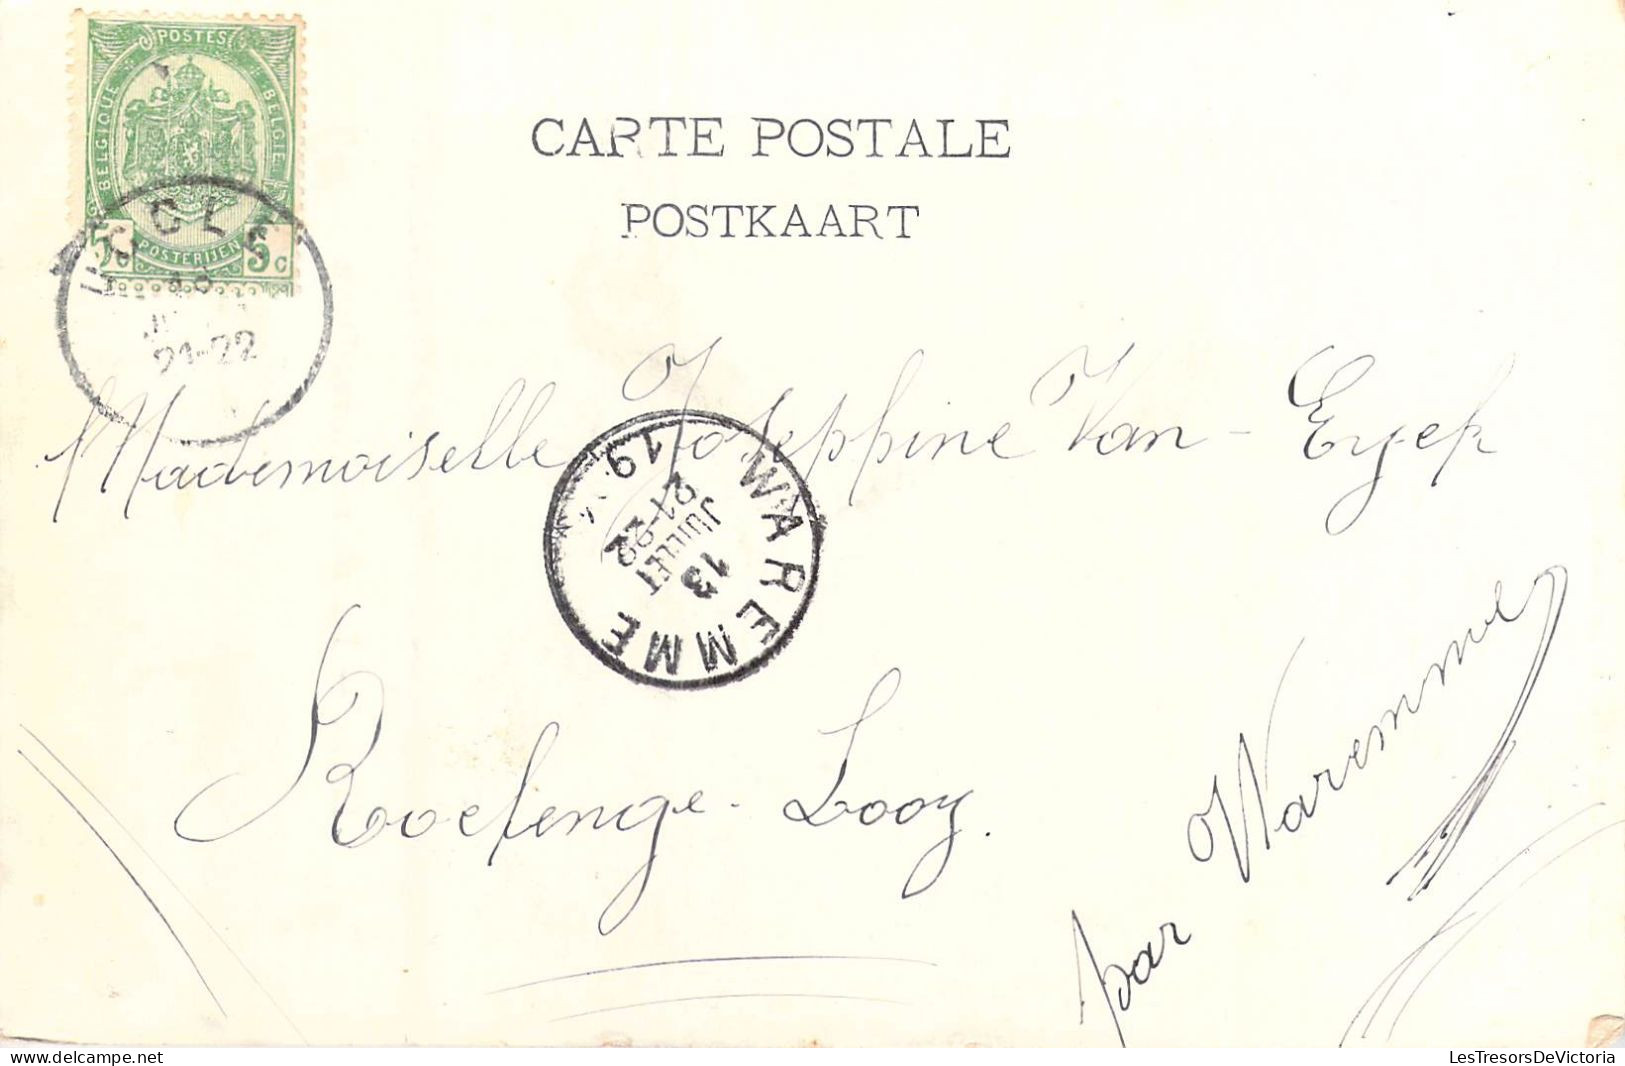 POSTES
BELGIQUE
BELGIE
POSTERIJEN
5 C
UCCLE
21-22
CARTE POSTALE
POSTKAART
Mademoiselle Josephine Van-Eyck
WAREMME
13
JUILLET
21-22
19
Roclenge-Looz.
par Waremme
LesTresorsDeVictoria